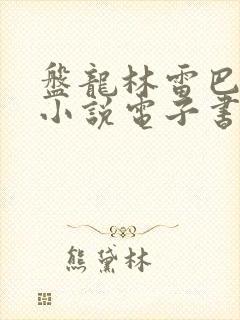 盤龍林雷巴
小說電子書
熊黛林